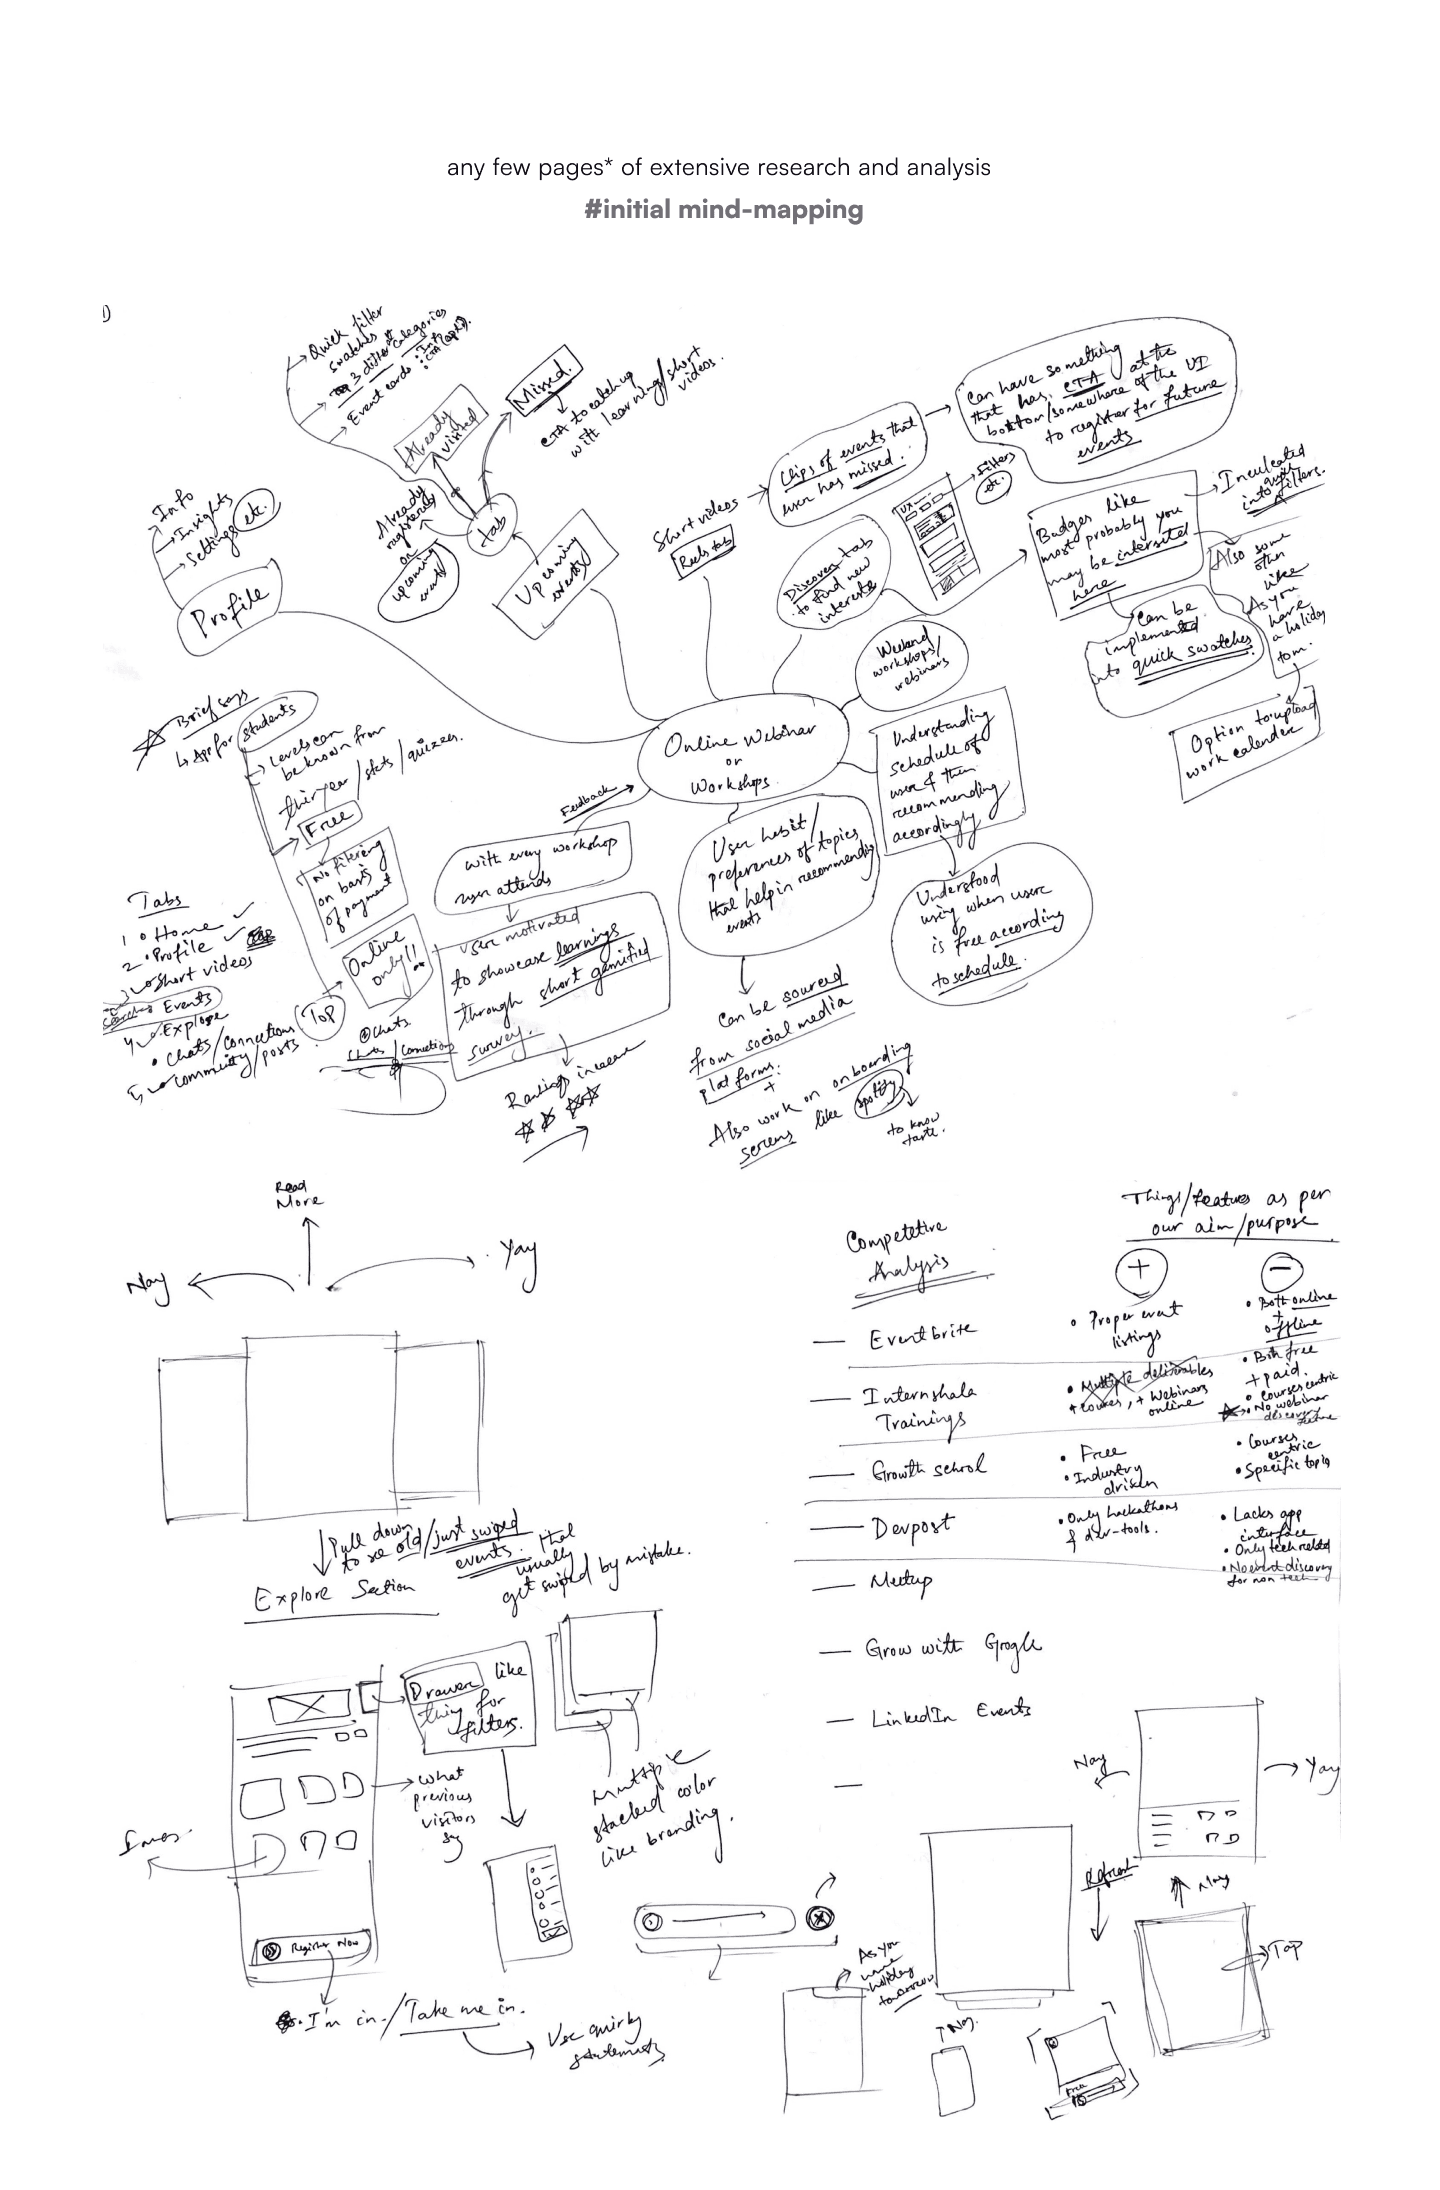 any few pages* of extensive research and analysis
#initial mind-mapping
1)
Quick filter
swatches
3 different categories
Event cards
Info
CTA
Already
visited
Missed.
CTA to catch up
with learning/short
videos.
Already
registered
or
upcoming
events
tab
Upcoming
events
Info
Insights
Settings etc.
Profile
Short videos
Reels tab
Clips of events that
user has missed.
Can have something
that has CTA at the
bottom/somewhere of the UI
to register for future
events
Discover tab
to find new
interests
UX
Filters
etc.
Badges like
most probably you
may be interested
here
Inculcated
into quick
filters.
Also some
other
like
As you
have
a holiday
tom.
Can be
implemented
into quick swatches
Option to upload
work calender
Weekend
workshops/
webinars
Online Webinar
or
Workshops.
Understanding
schedule of
user & then
recommending
accordingly
Understood
using when user
is free according
to schedule.
User habit/
preferences of topics
that help in recommending
events
Can be sourced
from social media
platforms.
+
Also work on onboarding
screens like spotify
to know
taste.
Feedback
with every workshop
user attends
user motivated
to showcase learnings
through short gamified
survey.
Ranking increase
Brief says
App for students
Levels can
be known from
their year/stats/quizzes.
Free
No filtering
on basis
of payment
Online
only!!
Top
Chats
Chats/Connections
Tabs
1 • Home
2 • Profile
3 Short videos
Searches Events
4 Explore
• Chats/connections
5 community/posts
Read
More
Nay
Yay
Pull down
to see old/just swiped
events. that
usually
get swiped by mistake.
Explore Section
Drawer like
thing for
filters.
What
previous
visitors
say
Multiple
stacked color
like branding.
Register Now
• I'm in./Take me in.
Use quirky
statements
Competetive
Analysis
Things/features as per
our aim/purpose
+
−
— Eventbrite
• Proper event
listings
• Both online
+
offline
— Internshala
Trainings
• Multiple deliverables
+ courses, + Webinars
online
• Both free
+ paid.
• courses centric
• No webinar
discovery
feature
— Growth school
• Free
• Industry
driven
• Courses
centric
• Specific topics
— Devpost
• Only hackathons
& dev-tools.
• Lacks app
interface
• Only tech related
• No event discovery
for non tech
— Meetup
— Grow with Google
— LinkedIn Events
—
Nay
Yay
Refresh
Nay
Tap
As you
have
holiday
tomorrow
Nay.
Free